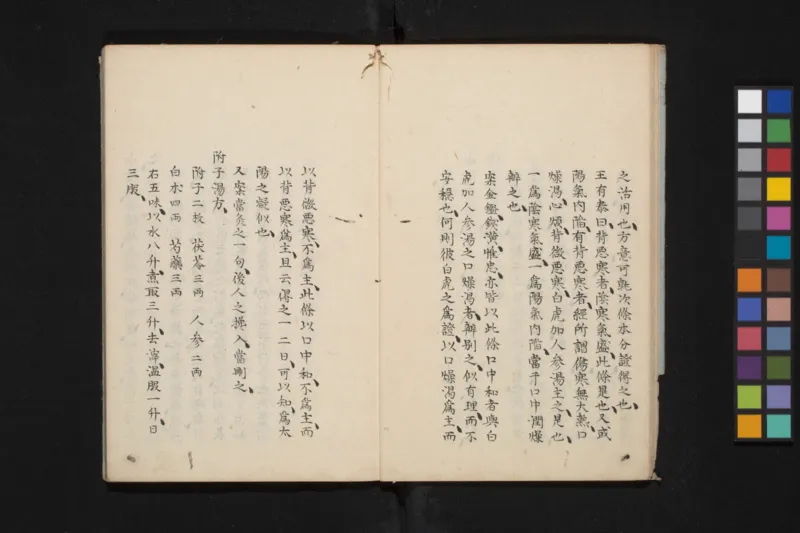 之活用也方意可就次條本分證得之也
王有泰曰背惡寒者陰寒氣盛此條是也又或
陽氣內陷有背惡寒者經所謂傷寒無大熱口
燥渴心煩背微惡寒白虎加人參湯主之是也
一爲陰寒氣盛一爲陽氣內陷當于口中潤燥
辨之也
案金鑑錢潢惟忠亦皆以此條口中和者與白
虎加人參湯之口燥渴者辨別之似有理而不
穩也何則彼白虎之爲證以口燥渴爲主而
以背微惡寒不爲主此條以口中和不爲主而
以背惡寒爲主且云得之一二日可以知爲太
陽之凝似也
又案當灸之一句後人之攙入當刪之
附子湯方
附子二枚 茯苓三兩 人參二兩
白朮四兩 芍藥三兩
右五味以水八升煮取三升去滓溫服一升日
三服